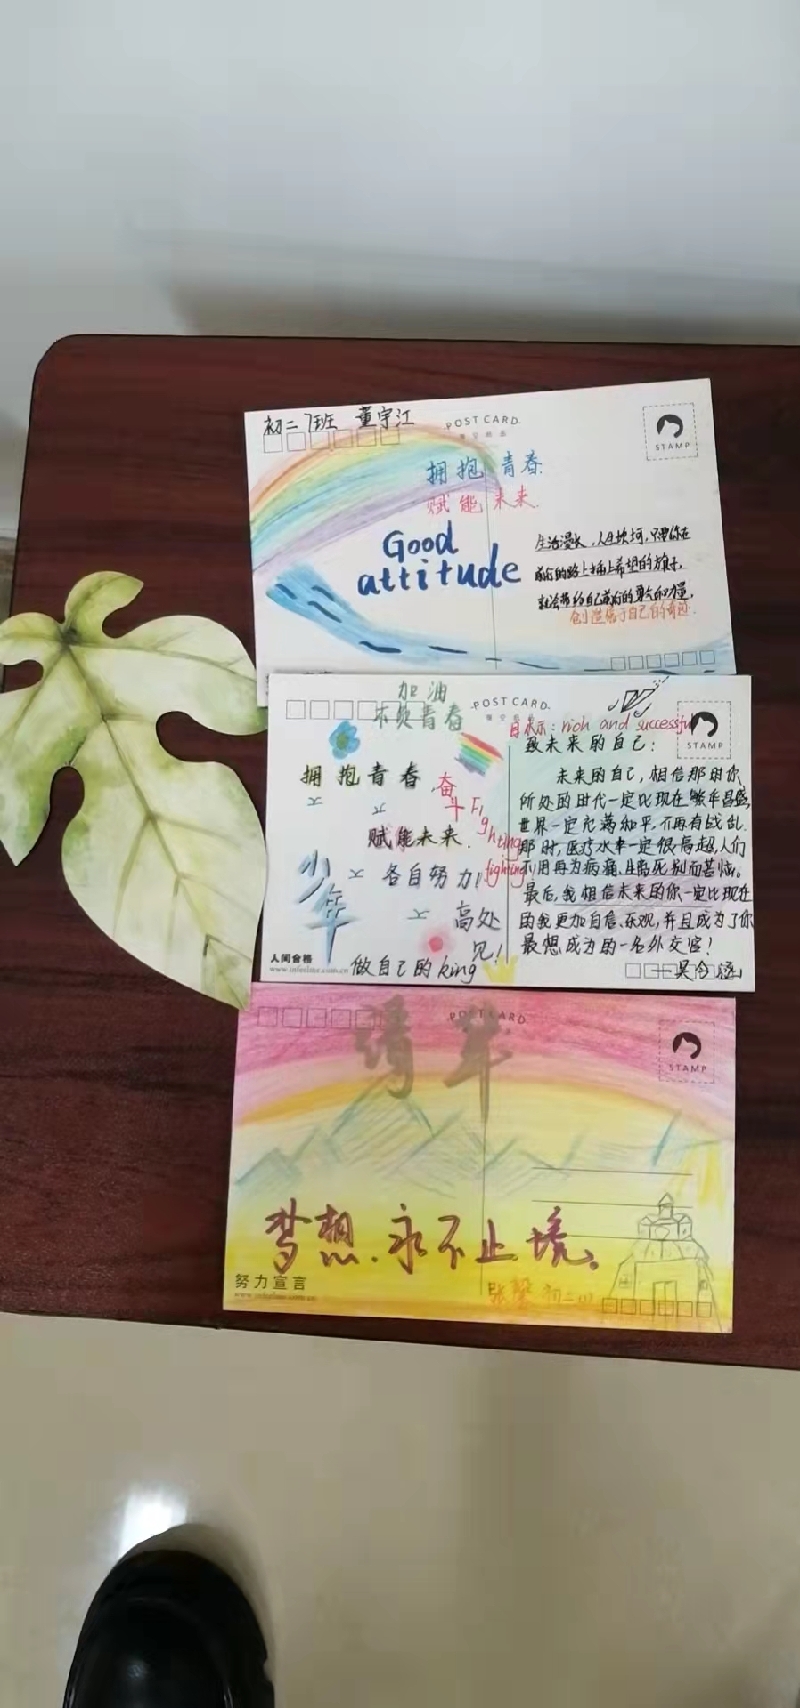 初二7班 童宇江
POST CARD
STAMP
拥抱青春
赋能未来
Good
attitude
生活漫长,人生坎坷,只要你在
前行的路上插上希望的旗帜,
就会带给自己前行的勇气和力量,
创造属于自己的奇迹.
加油
不负青春
POST CARD
STAMP
目标: rich and successful
致未来的自己:
拥抱青春
奋斗 Fighting
赋能未来.
fighting
少年
各自努力!
高处
见!
做自己的king
人间合格
未来的自己,相信那时你
所处的时代一定比现在繁华昌盛,
世界一定充满和平,不再有战乱.
那时,医疗水平一定很高超,人们
不用再为病痛,且离死别而苦恼。
最后,我相信未来的你一定比现在
的我更加自信、乐观,并且成为了你
最想成为的一名外交官!
POST CARD
STAMP
青年
梦想.永不止境。
努力宣言
张馨 初二(1)